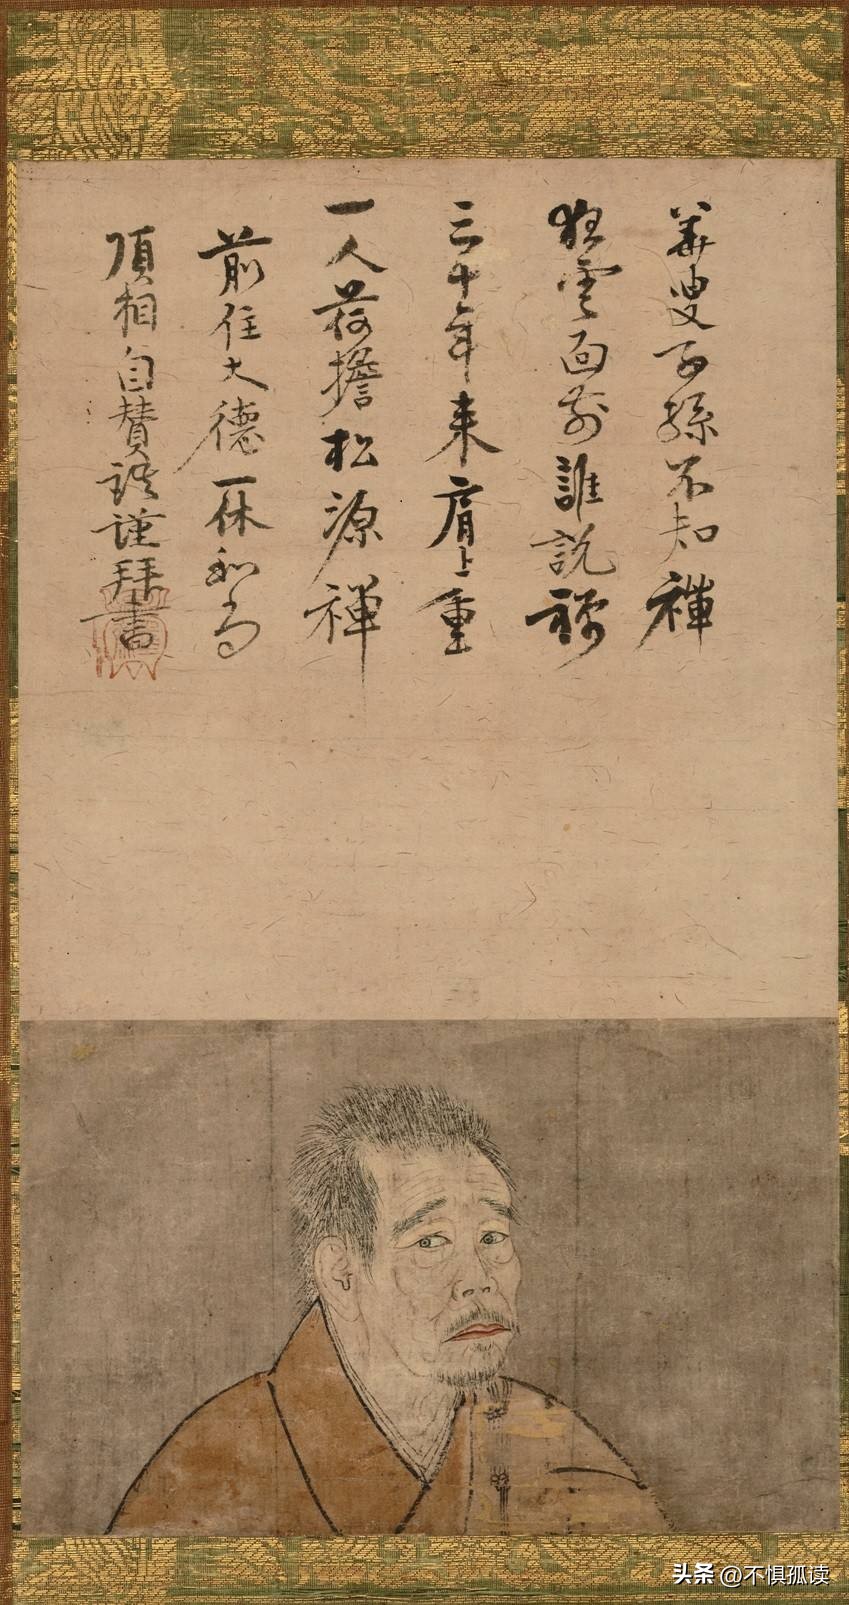 華叟子孫不知禅
狂雲面前誰説禅
三十年来肩上重
一人荷擔松源禅
前住大德一休和尚
頂相自賛謹拜書
头条 @不惧孤读